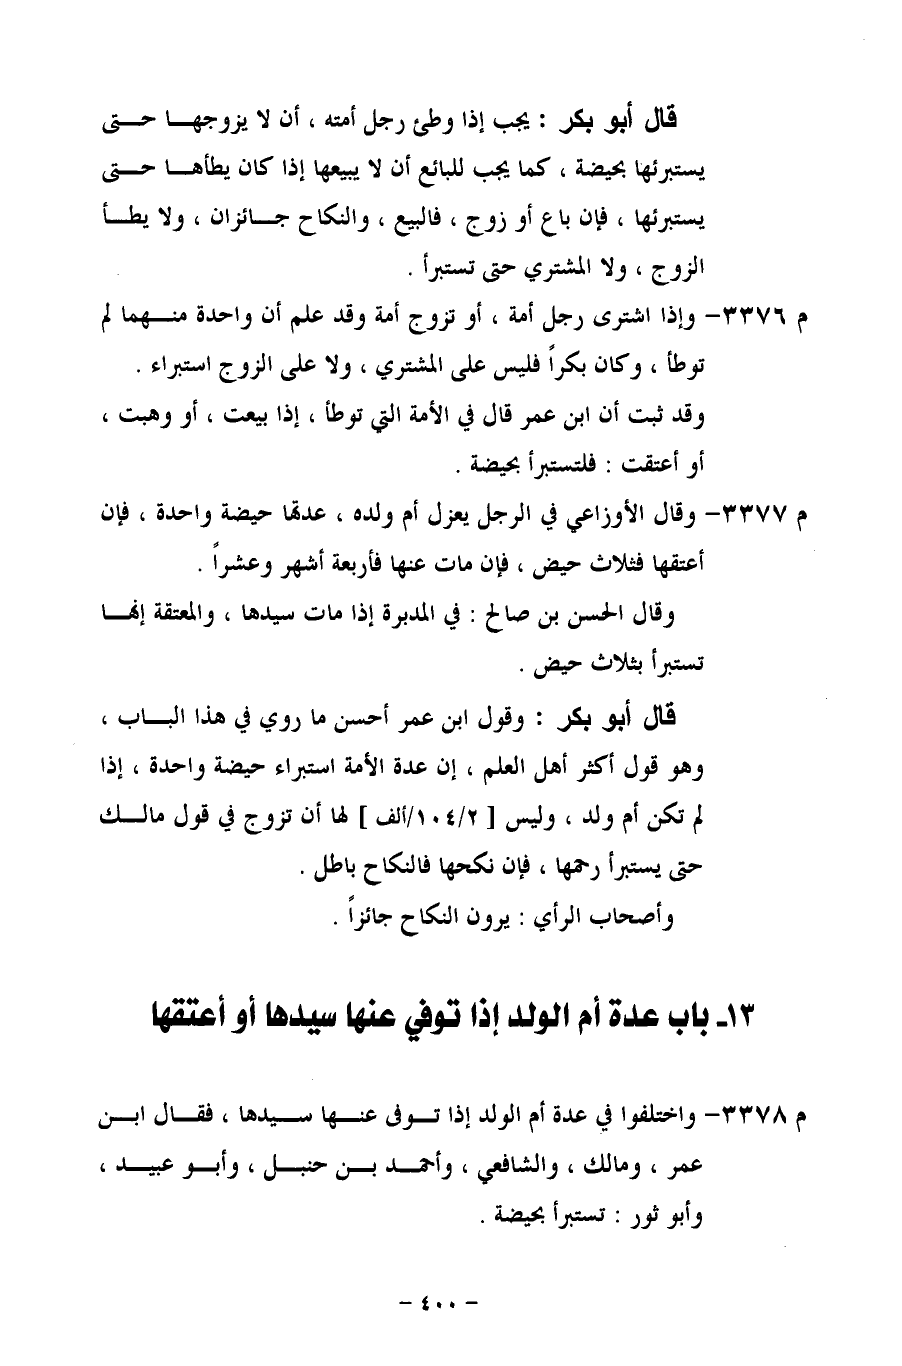 قال أبو بكر : يجب إذا وطئ رجل أمته ، أن لا يزوجهـا حـتى
يستبرئها بحيضة ، كما يجب للبائع أن لا يبيعها إذا كان يطأهـا حـتى
يستبرئها ، فإن باع أو زوج ، فالبيع ، والنكاح جـائزان ، ولا يطـأ
الزوج ، ولا المشتري حتى تستبرأ .
م ٣٣٧٦– وإذا اشترى رجل أمة ، أو تزوج أمة وقد علم أن واحدة منـهما لم
توطأ ، وكان بكراً فليس على المشتري ، ولا على الزوج استبراء .
وقد ثبت أن ابن عمر قال في الأمة التي توطأ ، إذا بيعت ، أو وهبت ،
أو أعتقت : فلتستبرأ بحيضة .
م ٣٣٧٧– وقال الأوزاعي في الرجل يعزل أم ولده ، عدتها حيضة واحدة ، فإن
أعتقها فثلاث حيض ، فإن مات عنها فأربعة أشهر وعشراً .
وقال الحسن بن صالح : في المدبرة إذا مات سيدها ، والمعتقة إنهـا
تستبرأ بثلاث حيض .
قال أبو بكر : وقول ابن عمر أحسن ما روي في هذا البـاب ،
وهو قول أكثر أهل العلم ، إن عدة الأمة استبراء حيضة واحدة ، إذا
لم تكن أم ولد ، وليس [ ١٠٤/٢/ألف ] لها أن تزوج في قول مالـك
حتى يستبرأ رحمها ، فإن نكحها فالنكاح باطل .
وأصحاب الرأي : يرون النكاح جائزاً .
١٣ـ باب عدة أم الولد إذا توفي عنها سيدها أو أعتقها
م ٣٣٧٨– واختلفوا في عدة أم الولد إذا تـوفى عنـها سـيدها ، فقـال ابـن
عمر ، ومالك ، والشافعي ، وأحمـد بـن حنبـل ، وأبـو عبيـد ،
وأبو ثور : تستبرأ بحيضة .
– ٤٠٠ –